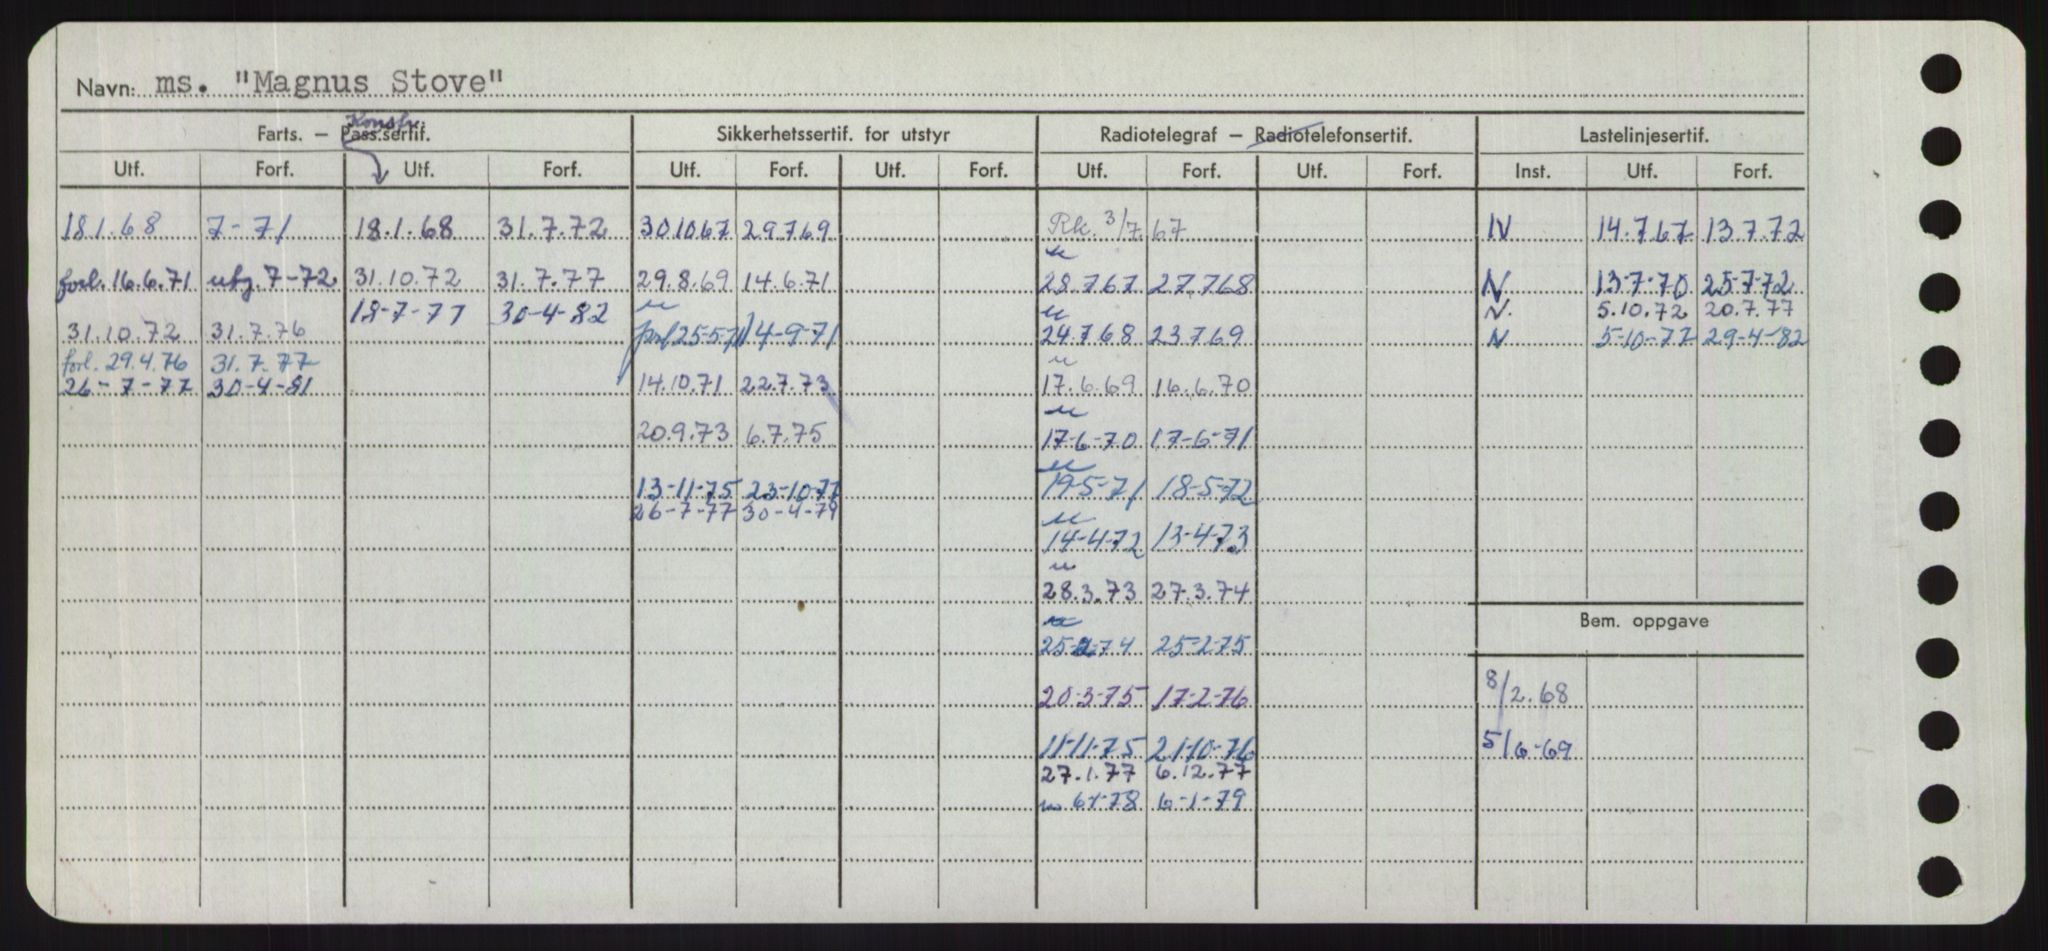 Navn: ms. "Magnus Stove"
Konstr.
Farts. — Pass.sertif. Sikkerhetssertif. for utstyr Radiotelegraf — Radiotelefonsertif. Lastelinjesertif.
Utf. Forf. Utf. Forf. Utf. Forf. Utf. Forf. Utf. Forf. Utf. Forf. Inst. Utf. Forf.
18.1.68 7-71 18.1.68 31.7.72 30.10.67 29.7.69 Rk. 3/7.67 N 14.7.67 13.7.72
forl. 16.6.71 utg. 7-72 31.10.72 31.7.77 29.8.69 14.6.71 28.7.67 27.7.68 N 13-7-70 25-7-72
18-7-77 30-4-82 N. 5.10.72 20.7.77
31.10.72 31.7.76 forl 25-5-71 14-9-71 24.7.68 23.7.69 N 5-10-77 29-4-82
forl. 29.4.76 31.7.77
26-7-77 30-4-81 14.10.71 22.7.73 17.6.69 16.6.70
20.9.73 6.7.75 17-6-70 17-6-71
13-11-75 23-10-77 19-5-71 18-5-72
26-7-77 30-4-79
14-4-72 13-4-73
28.3.73 27.3.74
Bem. oppgave
25-2-74 25-2-75
20-3-75 17-2-76 8/2.68
11-11-75 21-10-76 5/6-69
27.1.77 6.12.77
6-1-78 6-1-79